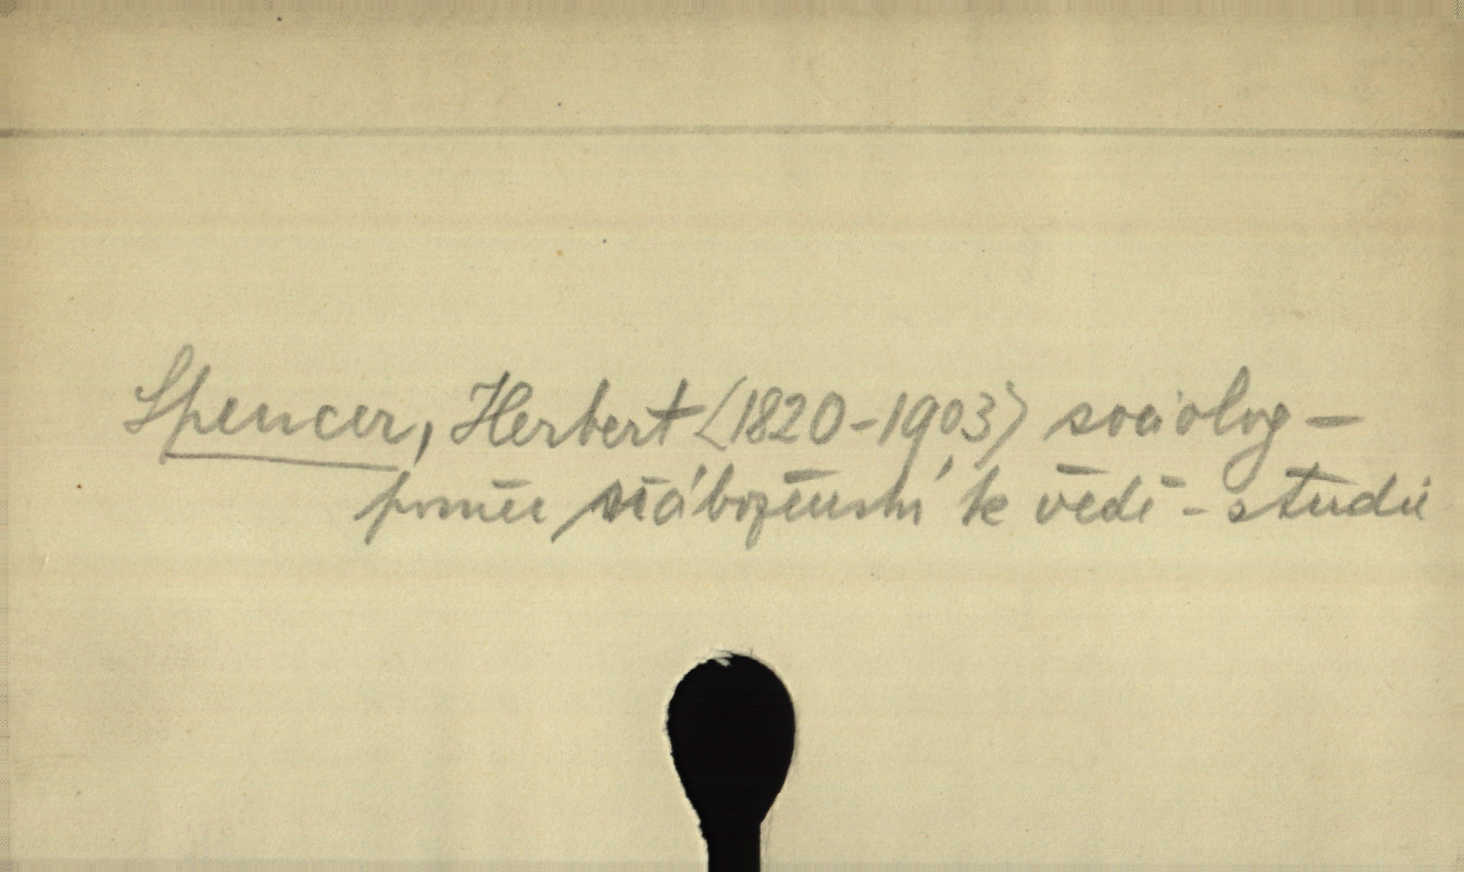 Spencer, Herbert <1820-1903> sociolog -
poměr náboženství k vědě - studie